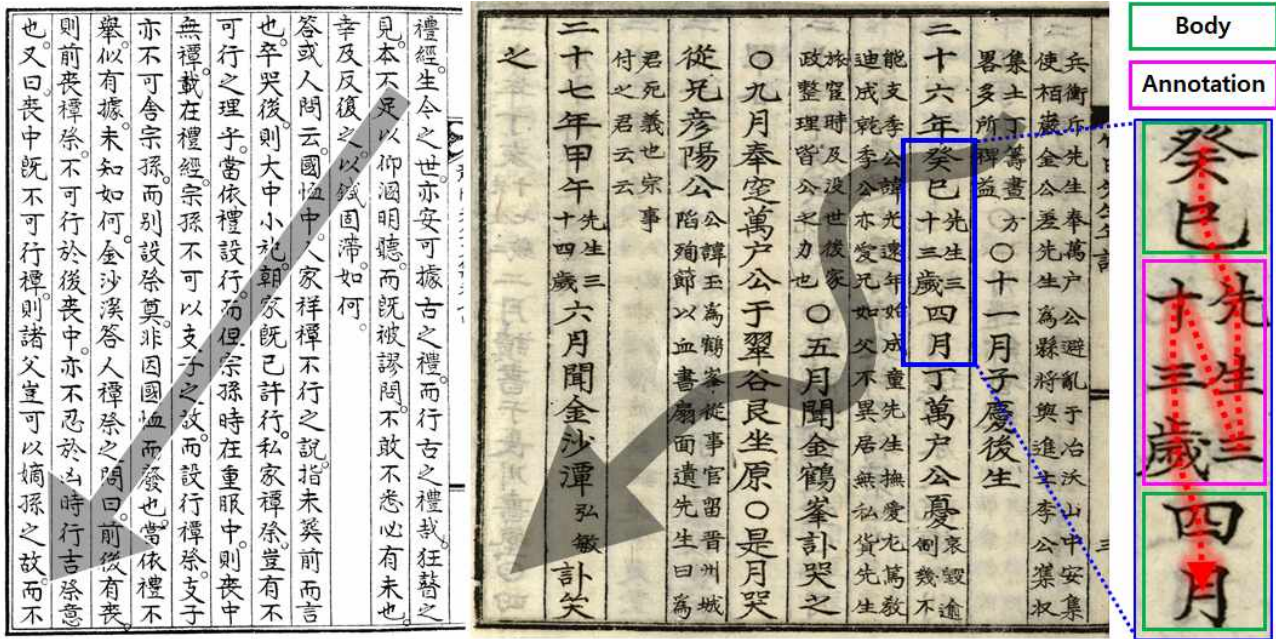 禮經。生今之世。亦安可據古之禮。而行古之禮哉。狂瞽之
見。本不足以仰溷明聽。而既被謬問。不敢不悉。必有未也。
幸反反復之。以固滯。如何。
答或人問云。國恤中人家祥禫不行之說。指未葬前而言
也。卒哭後。則大中小祀。朝家既已許行。私家禫祭。豈有不
可行之理乎。當依禮設行。而但宗孫時在重服中。則喪中
無禫。載在禮經。宗孫不可以支子之故。而設行禫祭。支子
亦不可舍宗孫。而別設祭奠。非因國恤而廢也。當依禮不
舉。似有據。未知如何。金沙溪答人禫祭之問曰。前後有喪。
則前喪禫祭。不可行於後喪中。亦不忍於凶時行吉祭意
也。又曰。喪中既不可行禫。則諸父豈可以嫡孫之故。而不
兵衡兵先生奉萬户公避亂于冶沃山中安集
使栢巖金公差先生爲縣將與進士李公
集士丁籌畫方
畧多所裨益
〇十一月子慶後生
二十六年癸巳
先生三
十三歲
四月丁萬户公憂
哀毀逾
幾不
能支季公諱光遠年始成童先生撫愛尤篤敎
迪成乾季公亦愛兄如父不異居無私貨先生
旅窆時及没世後家
政整理皆公之力也
〇五月聞金鶴峯訃哭之
〇九月奉窆萬户公于翠谷艮坐原〇是月哭
從兄彦陽公
公諱玉爲鶴峯從事官留晋州城
陷殉節以血書扇面遺先生曰爲
君死義也宗事
付之君云云
二十七年甲午
先生三
十四歲
六月聞金沙潭
弘敏
訃哭
之
Body
Annotation
癸巳
先生三
十三歲
四月